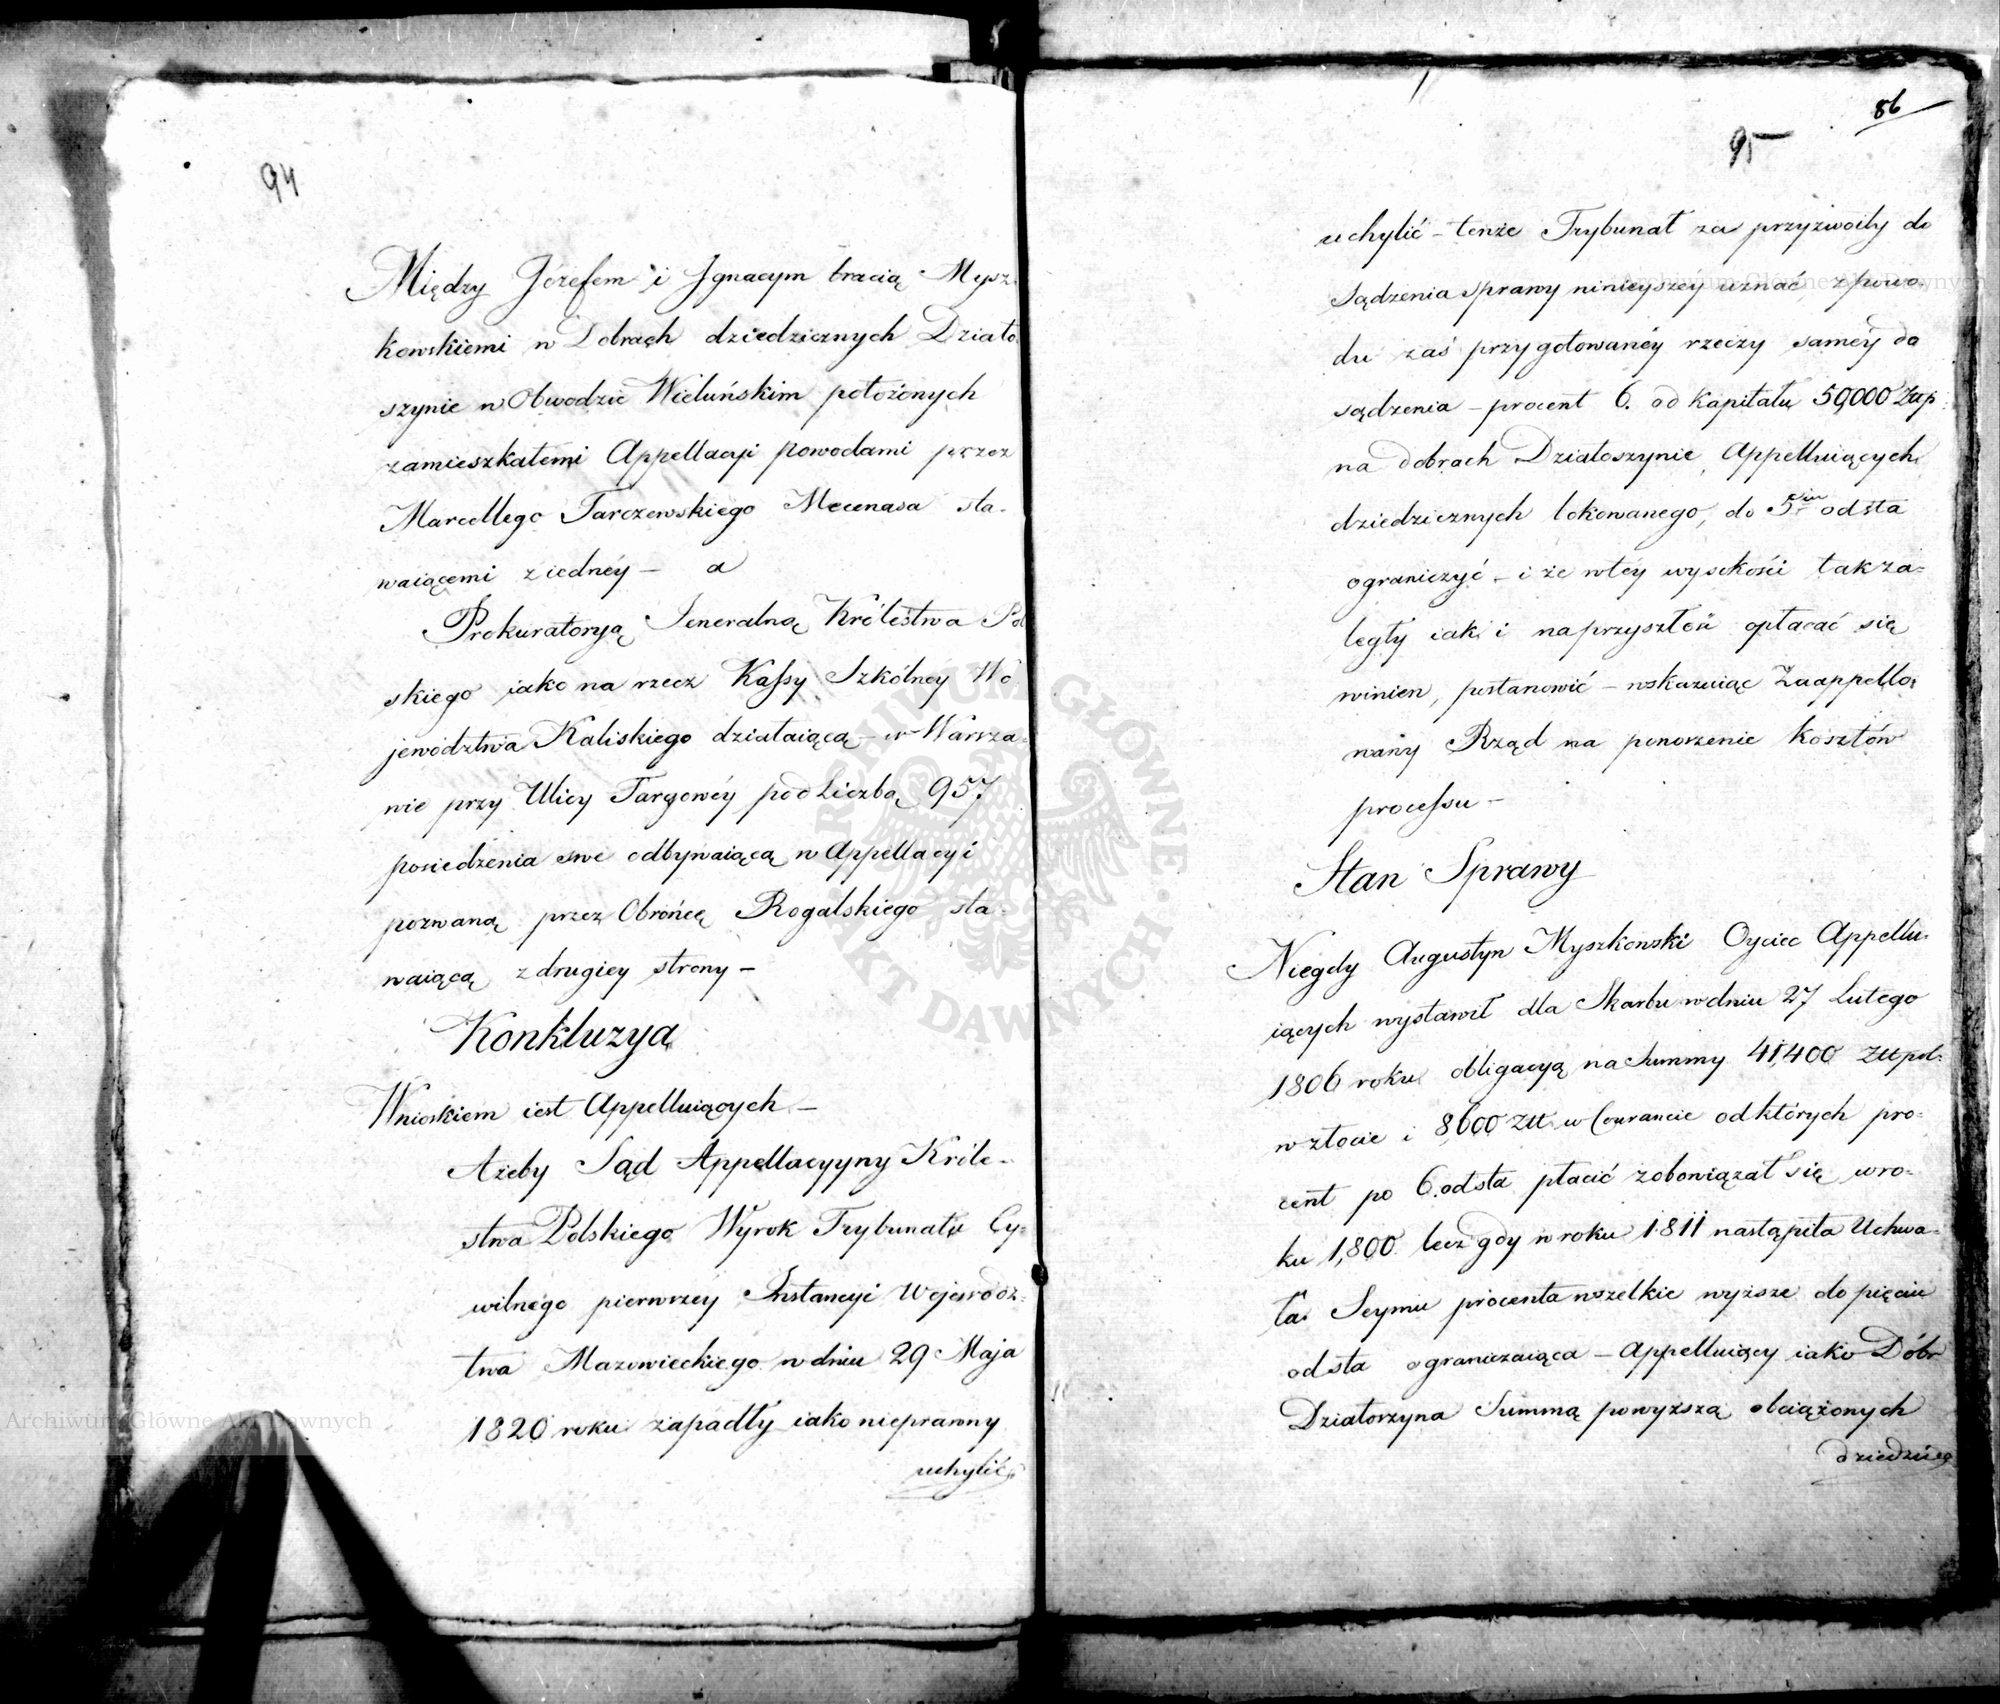 94
Między Józefem i Ignacym bracią Mysz-
kowskiemi w Dobrach dziedzicznych Działo
szynie w Obwodzie Wieluńskim położonych
zamieszkałemi Appellacyi powodami przez
Marcellego Tarczewskiego Mecenasa sta-
waiącemi z iednéy – a
Prokuratoryą Jeneralną Królestwa Pol
skiego iako na rzecz Kassy Szkólney Wo
jewództwa Kaliskiego działaiącą – w Warsza-
wie przy Ulicy Targowéy pod Liczbą 957
posiedzenia swe odbywaiącą w Appellacyi
pozwaną przez Obrońcę Rogalskiego sta-
waiącą z drugiey strony –
Konkluzya
Wnioskiem iest Appelluiących –
Ażeby Sąd Appellacyyny Króle-
stwa Polskiego Wyrok Trybunału Cy-
wilnego pierwszey Instancyi Wojewódz-
twa Mazowieckiego w dniu 29 Maja
1820 roku zapadły iako nieprawny
uchylić
86
95
uchylić – tenże Trybunał za przyzwoity do
sądzenia sprawy ninieyszéy uznać, z powo-
du zaś przygotowanéy rzeczy saméy do
sądzenia – procent 6. od Kapitału 50,000 Złp
na dobrach Działoszynie Appelluiących
dziedzicznych lokowanego, do 5ciu od sta
ograniczyć – i że w téy wysokości tak za-
legły iak i na przyszłość opłacać się
winien, postanowić – wskazuiąc Zaappello-
wany Rząd na powrócenie Kosztów
processu –
Stan Sprawy
Niegdy Augustyn Myszkowski Oyciec Appellu-
iących wystawił dla Skarbu w dniu 27 Lutego
1806 roku obligacyą na Summy 41,400 Złt pol:
w złocie i 8600 Złt w Courancie od których pro-
cent po 6. od sta płacić zobowiązał się w ro-
ku 1,800. lecz gdy w roku 1811 nastąpiła Uchwa-
ła Seymu procenta wszelkie wyższe do pięciu
od sta ograniczaiąca – Appelluiący iako Dóbr
Działoszyna Summą powyższą obciążonych
dziedzice
Archiwum Główne Akt Dawnych
Archiwum Główne Akt Dawnych
ARCHIWUM GŁÓWNE AKT DAWNYCH